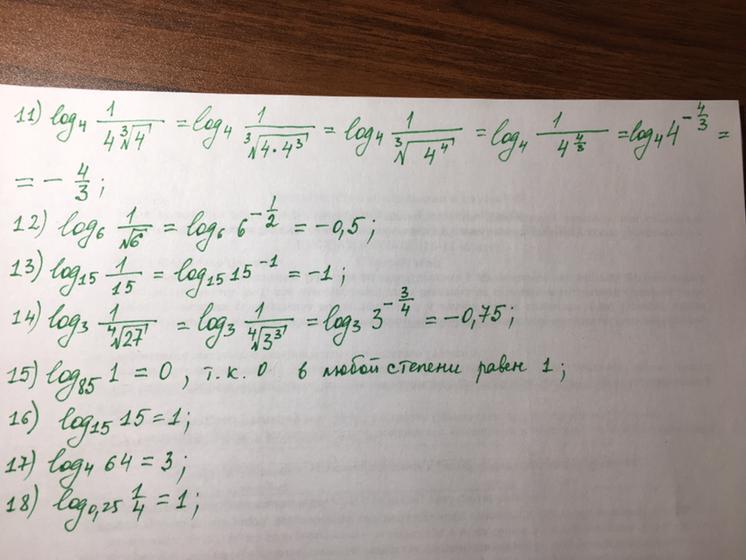 11) log₄ 1/(4∛4) = log₄ 1/∛(4·4³) = log₄ 1/∛(4⁴) = log₄ 1/4^(4/3) = log₄ 4^(-4/3) =
= - 4/3;
12) log₆ 1/√6 = log₆ 6^(-1/2) = -0,5;
13) log₁₅ 1/15 = log₁₅ 15⁻¹ = -1;
14) log₃ 1/∜27 = log₃ 1/∜(3³) = log₃ 3^(-3/4) = -0,75;
15) log₈₅ 1 = 0, т.к. 0 в любой степени равен 1;
16) log₁₅ 15 = 1;
17) log₄ 64 = 3;
18) log₀,₂₅ 1/4 = 1;